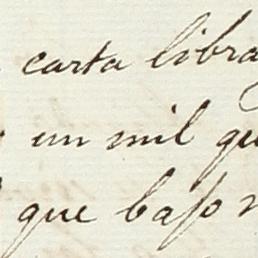 carta libra
un mil qu
que bajo